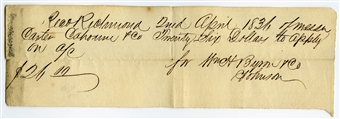 Recd Richmond 2nd April 1836 of messrs
Carter Cabourne & Co Twenty Six Dollars to apply
on a/c
for Wm H Byrn & Co
$26 00
Johnson